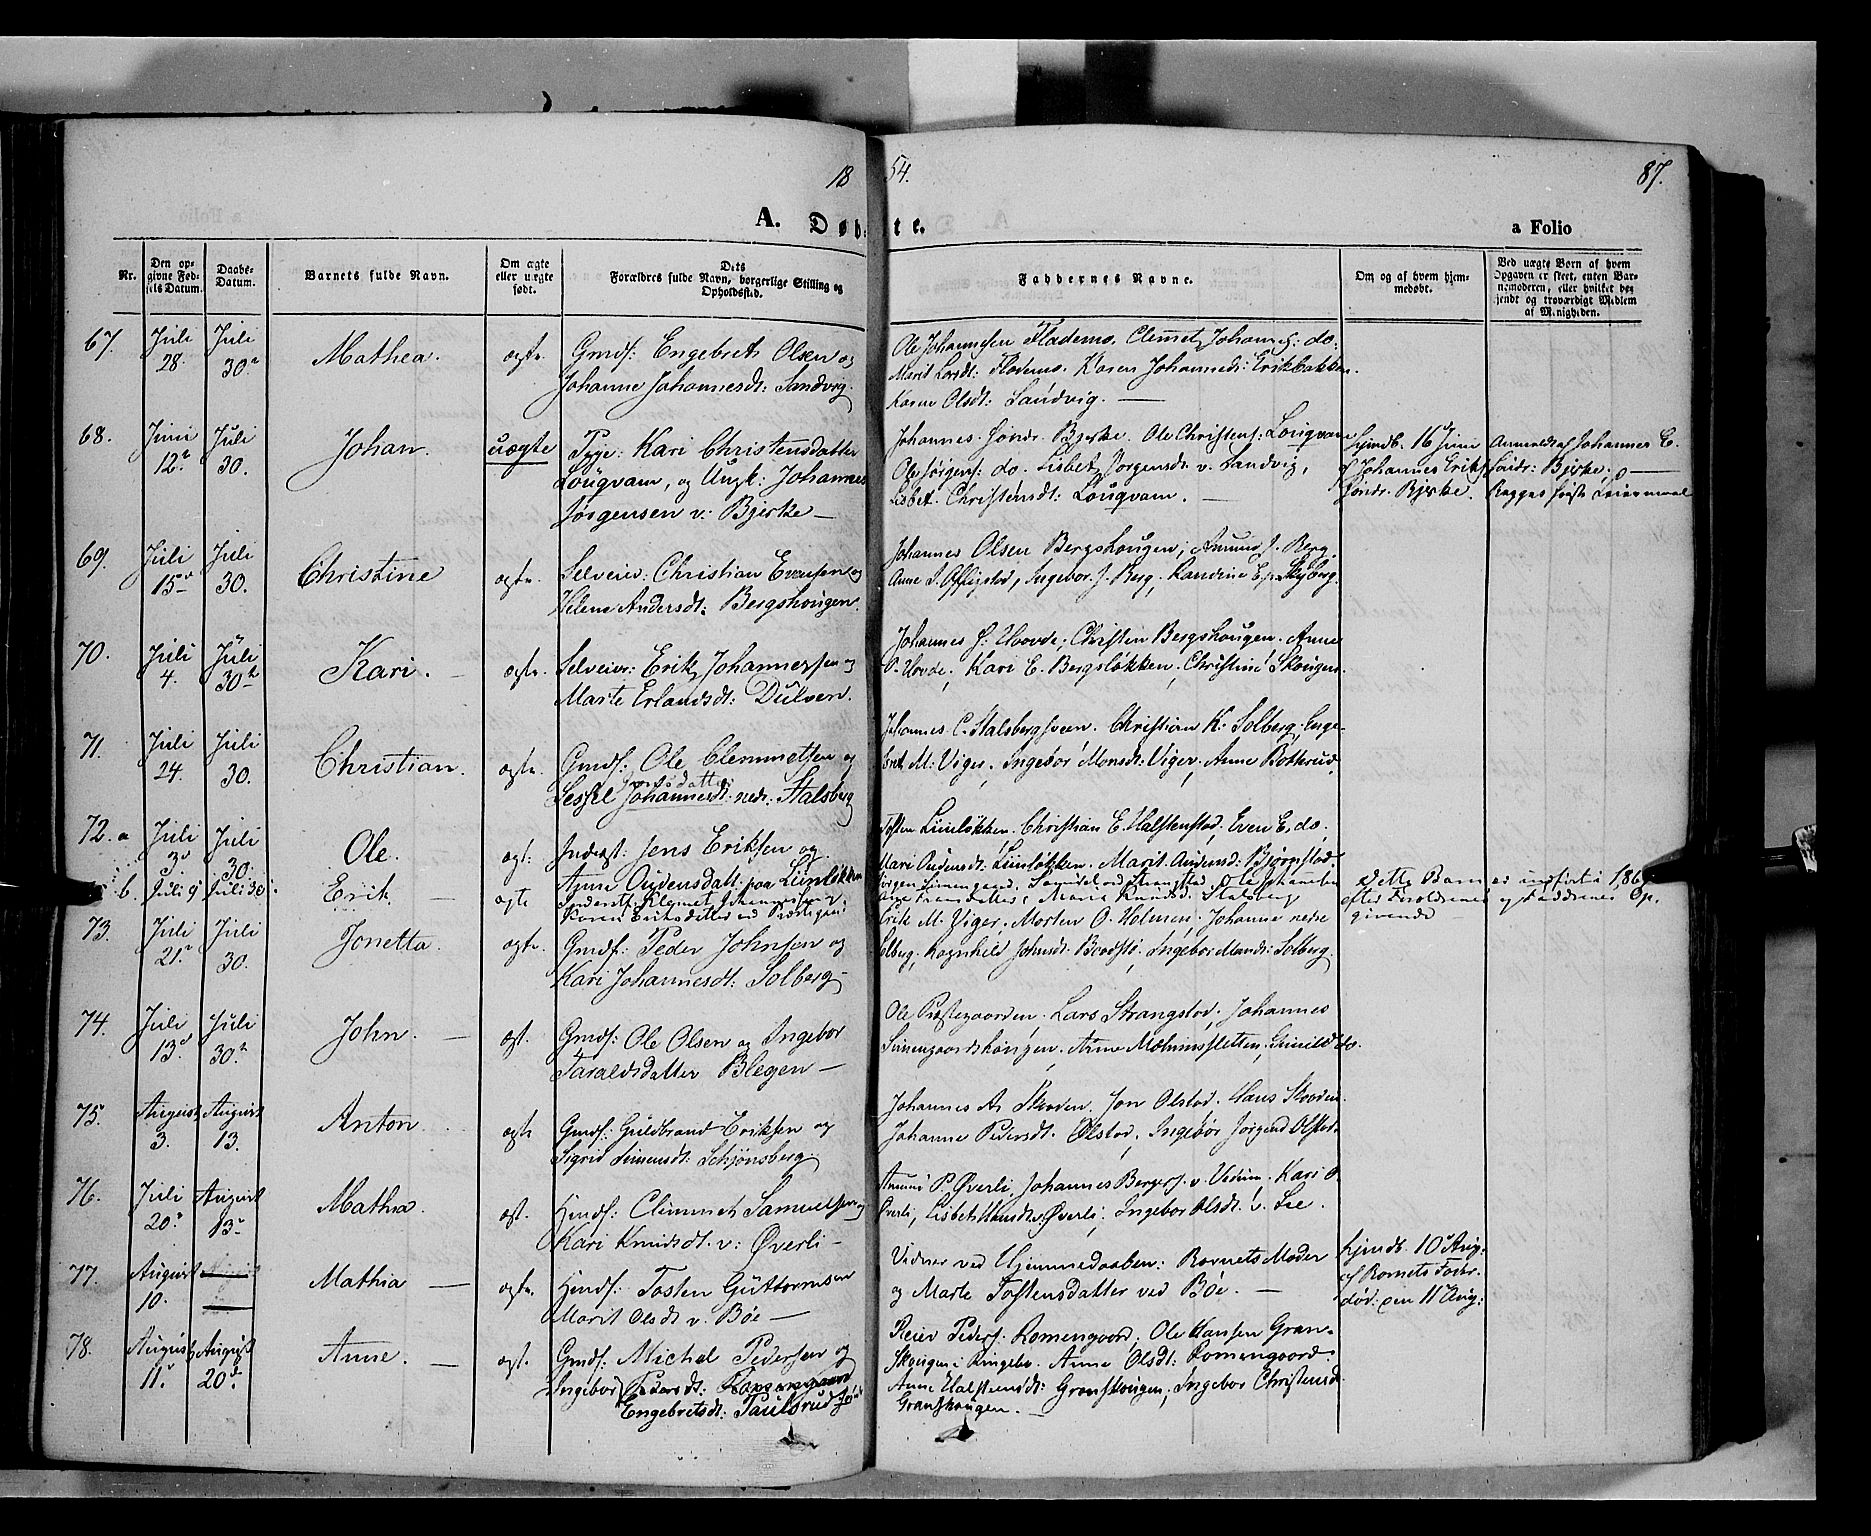 1854.
87.
A. Døbte.
a Folio
Nr.
Den opgivne Fødsels Datum.
Daabs-Datum.
Barnets fulde Navn.
Om ægte eller uægte født.
Dets Forældres fulde Navn, borgerlige Stilling og Opholdssted.
Faddernes Navne.
Om og af hvem hjemmedøbt.
Ved uægte Børn af hvem Opgaven er skeet, enten Barnemoderen, eller hvilket bekjendt og troværdigt Medlem af Menigheden.
67. Juli 28. Juli 30. Mathea. ægte. Gmdf: Engebret Olsen og
Johanne Johannesdt: Sandvig.
Ole Johannesen Flademo. Clemet Johannes: do:
Marit Larsdt: Flademo. Karen Johannesdt: Erikbakken.
Karen Olsdt: Sandvig. —
68. Juni 12. Juli 30. Johan. uægte Pige: Kari Christensdatter
Lougvam, og Ungk: Johannes
Jørgensen v: Bjerke —
Johannes Søndr. Bjerke. Ole Christens: Lougvam
Ole Jørgens: do. Lisbet Jørgensdt: v. Sandvig,
Lisbet Christensdt: Lougvam. —
Hjmdb. 16 Juni
af Johannes Eriks
Søndr. Bjerke.
Anmeldt af Johannes E.
Søndr: Bjerke.
Begges første Leiermaal
69. Juli 15 Juli 30. Christine ægte. Selveier: Christian Evensen og
Helene Andersdt: Bergshougen.
Johannes Olsen Bergshougen, Amund J. Berg.
Anne Offigstad, Ingebor J. Berg, Randine E. Skyberg.
70. Juli 4. Juli 30 Kari. — ægte. Selveier: Erik Johannessen og
Marte Erlandsdt: Dulven.
Johannes J: Hovde, Christen Bergshougen. Anne
O. Hovde, Kari E. Bergsløkken, Christine Skougen.
71. Juli 24. Juli 30. Christian. ægte. Gmdf: Ole Clemmetsen og
Sessel Johannesdt: nedr: Stalsberg
Johannes C. Stalsbergsveen. Christian K: Solberg, Enge-
bret M: Viger, Ingebor Monsdt: Viger, Anne Botterud.
72. a Juli 3 Juli 30. Ole. ægt: Inderst: Jens Eriksen og
Anne Oudensdatt: paa Liinløkken
Tosten Liinløkken. Christian E. Halstenstad, Even E. do.
Mari Oudensdt: Liinløkken. Marit Oudensd: Bjørnstad
b. Juli 9 Juli 30. Erik — ægte Inderst: Klemet Johannessen og
Karen Eriksdatter
Dette Barn er indført i
efter Forældrenes og Faddrenes Op-
givende
73. Juli 21. Juli 30. Jonetta. ægte. Gmdf: Peder Johnsen og
Kari Johannesdt: Solberg —
Erik M. Viger. Morten O. Holmen. Johanne nedre
Solberg. Ragnhild Johnsdt: Ingebor Solberg.
74. Juli 13 Juli 30. John. — ægt. Gmdf: Ole Olsen og Ingebor
Taraldsdatter Blegen —
Ole Præstegaarden. Lars Strangstad, Johannes
Simengaardshougen. Anne Molmsletten, do.
75. August 3. August 13. Anton. ægte Gmdf: Guldbrand Eriksen og
Sigrid Simensdt: Schjønsberg.
Johannes A. Skoden. Jon Olstad. Hans Skoden.
Johanne Pedersdt. Olstad, Ingebor Jørgensd Olstad.
76. Juli 20. August 13 Mathea. ægt. Hmdf: Clemmet Samuelsen og
Kari Knudsdt. v: Øverli —
Amund P. Øverli, Johannes v. Kari O.
Øverli, Lisbet Øverli, Ingebor Olsdt: v. Lee.
77. August 10. Mathia — ægte. Hmdf: Tosten Guttormsen
Marit Olsdt v. Bøe —
Vidner ved Hjemmedaaben: Barnets Moder
og Marte Tostensdatter ved Bøe. —
hjmdb. 10 Aug.
af Barnets Fader.
død: den 11 Aug:
78. August 11. August 20 Anne. — ægt. Gmdf: Michel Pedersen og
Ingebor Pedersdt: Romengaard
Engebretsdt: Paulsrud
Reier Peders. Romengaard, Ole Hansen Gran-
skougen i Ringebo. Anne Olsdt: Romengaard.
Anne Halstensdt: Granskougen, Ingebor Christensd.
Granskougen.